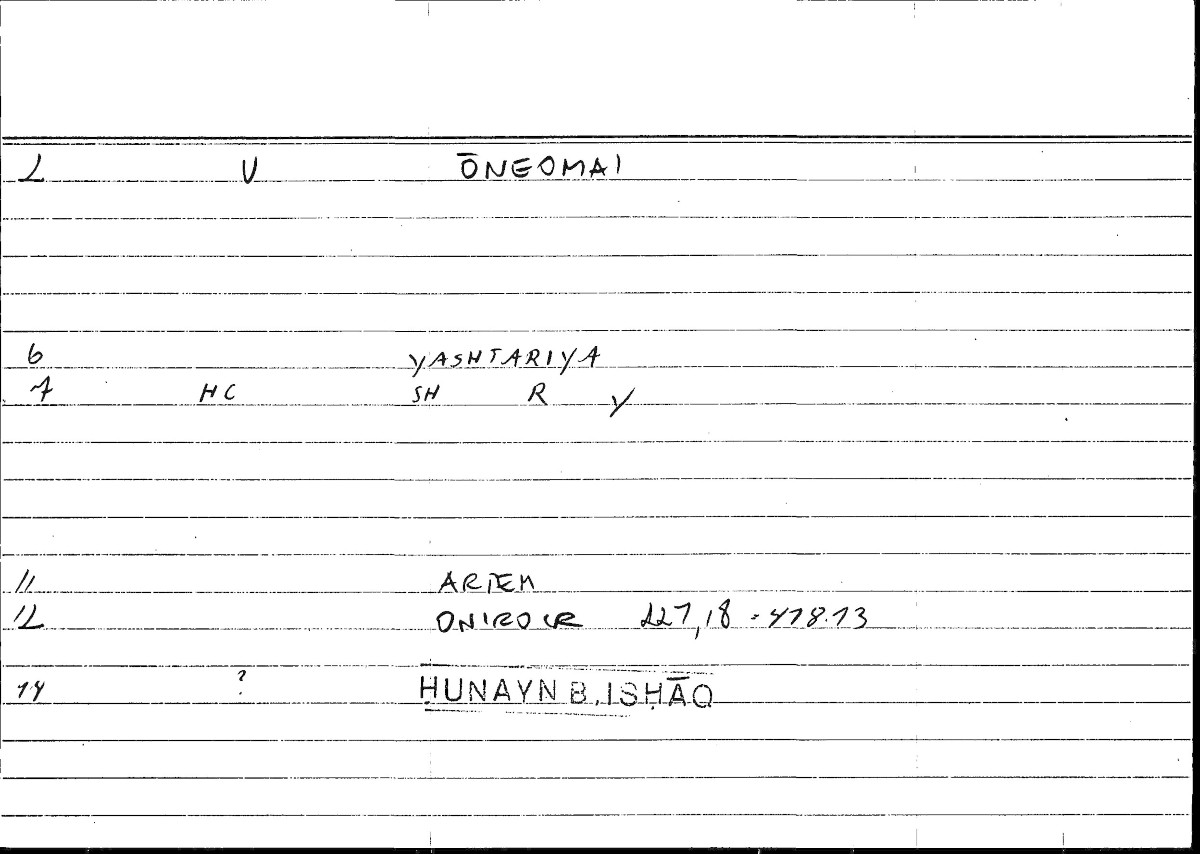 2 V ŌNEOMAI
6 YASHTARIYA
7 HC SH R Y
11 ARTEM
12 ONIROCR 227,18 = 418.13
14 ? ḤUNAYN B. ISḤĀQ